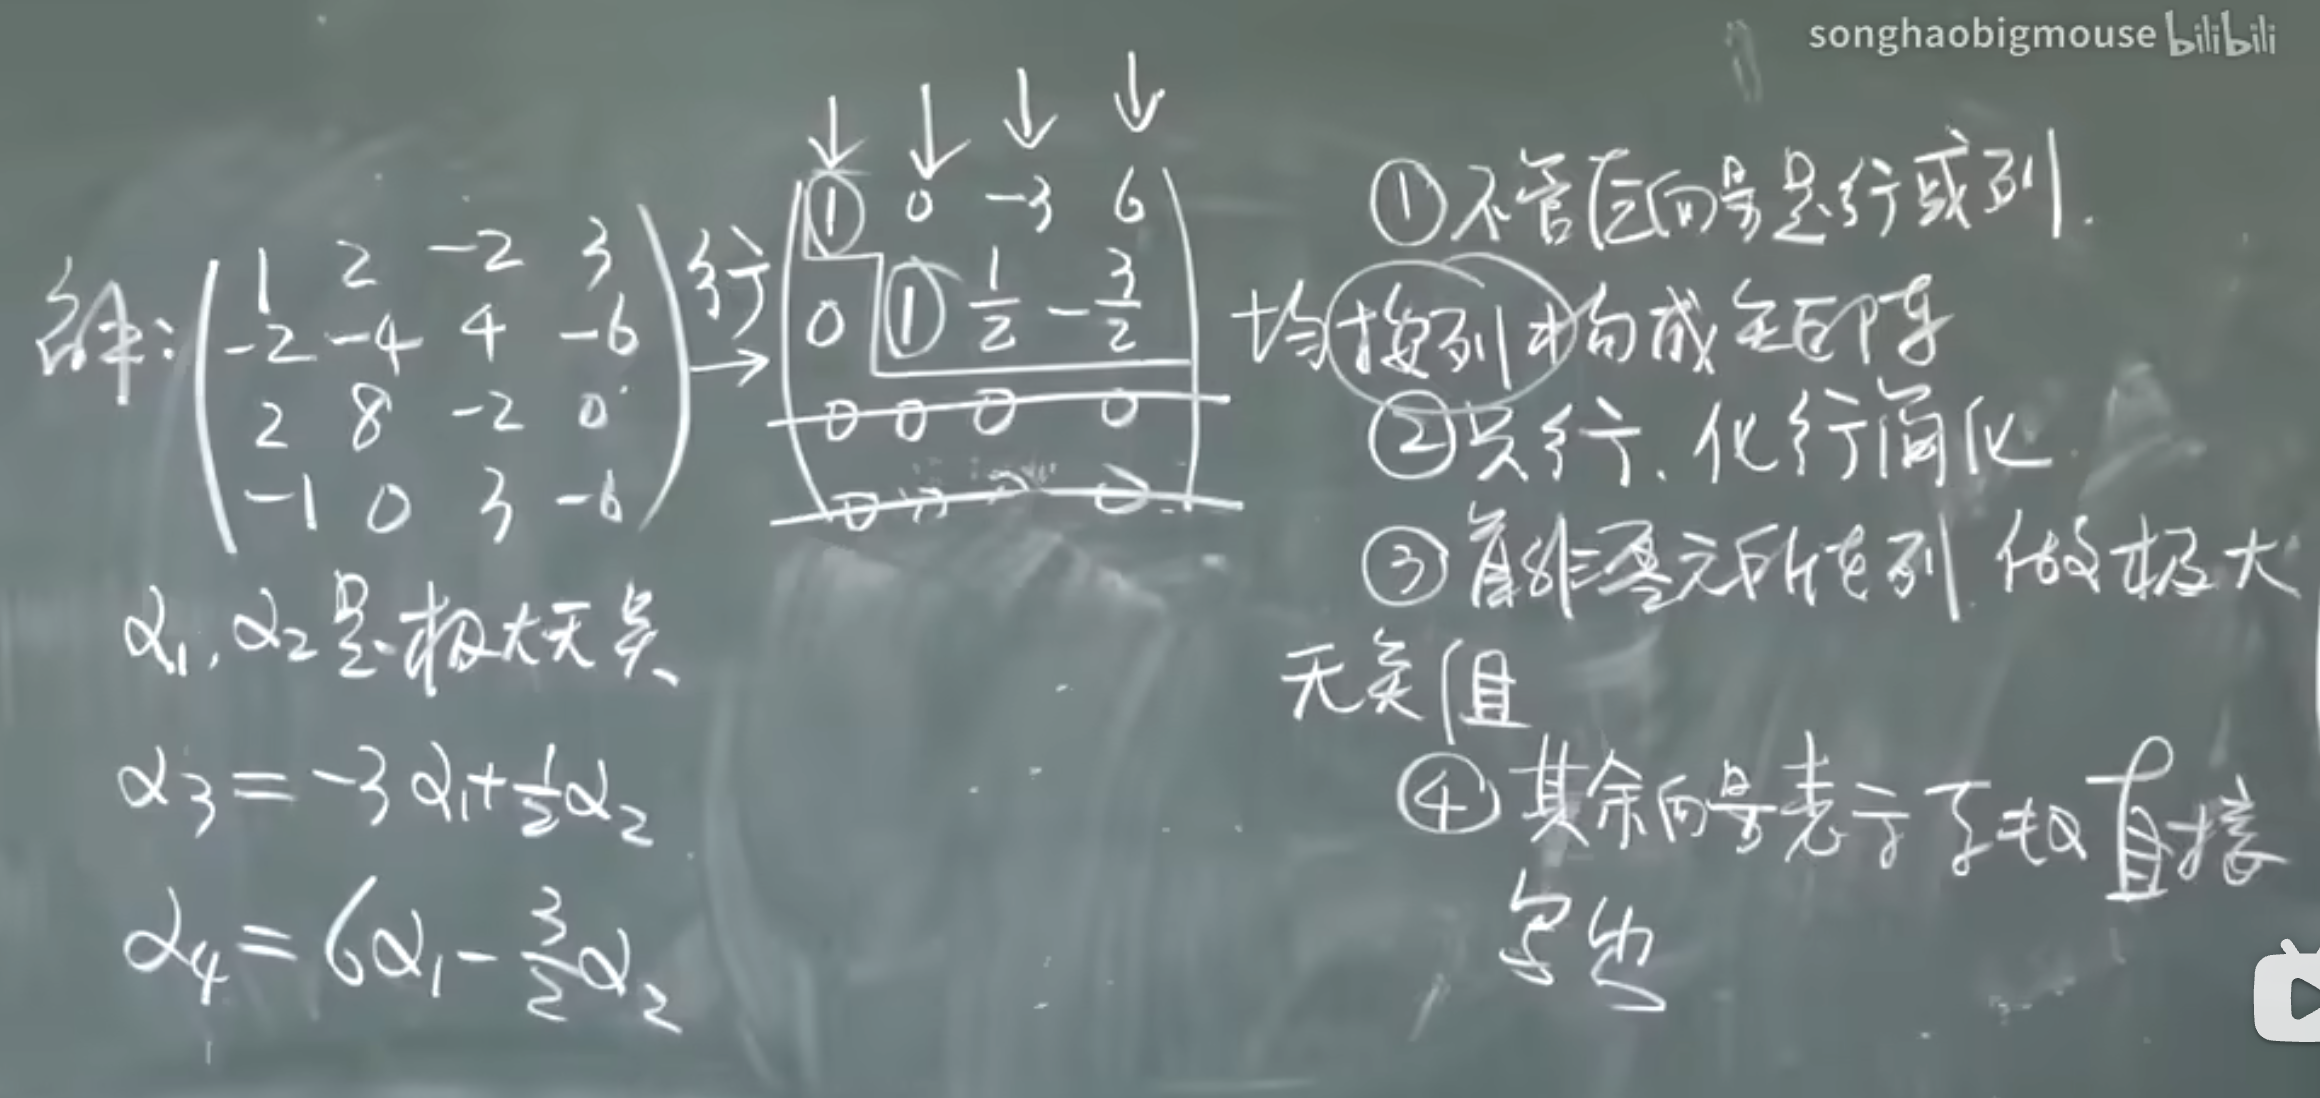 songhaobigmouse bilibili
解: ( 1 2 -2 3 ) 行 → ( 1 0 -3 6 )
( -2 -4 4 -6 ) ( 0 1 1/2 -3/2 )
( 2 8 -2 0 ) ( 0 0 0 0 )
( -1 0 3 -6 ) ( 0 0 0 0 )
α₁, α₂是极大无关
α₃ = -3α₁ + 1/2 α₂
α₄ = 6α₁ - 3/2 α₂
①不管原向量是行或列.
均按列构成矩阵
②只行、化行简化
③首非零元所在列 做极大
无关组
④其余向量表示系数直接
写出